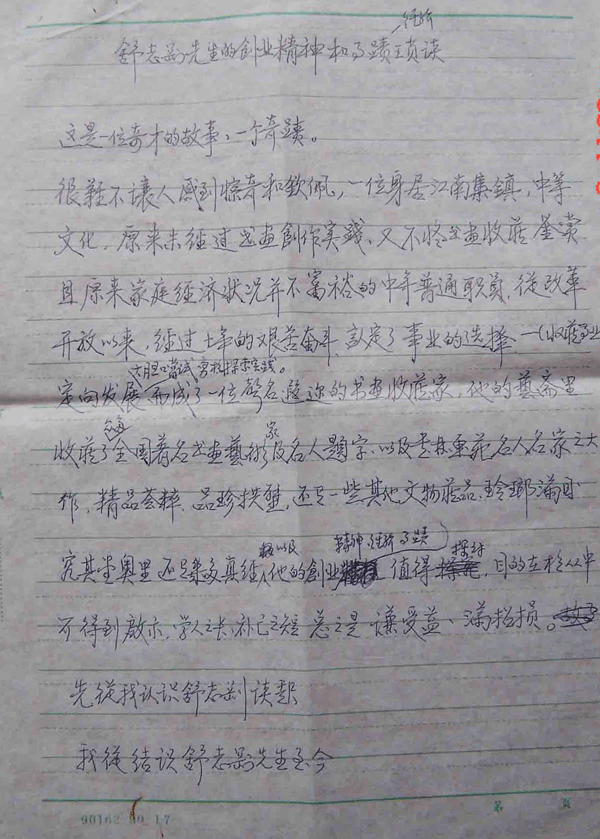 经验
舒志彪先生的创业精神和事蹟琐谈
这是一位奇才的故事、一个奇蹟。
很難不壤人感到惊奇和欽佩，一位身居江南集鎮，中等
文化，原来未经过书画創作实踐、又不怪书画收藏鉴赏
且原来家庭经济状况并不富裕的中年普通职員，從改革
开放以来，经过十年的艰苦奋斗，認定了事业的选择一(收藏事业
大胆嚐試 实践。
定向发展 而成了一位聲名遐迩的书画收藏家，他的藝斋里
收藏了全国著名书画藝術家及名人題字，以及 名人名家之大
作，精品荟粹，品珍拱璧，还有一些其他文物藏品，玲瑯滿目
究其堂奥里还是 多真经 以及他的創业精神 事蹟 值得探討，目的在於从中
不得到啟示，学人之长，补己之短 总之是 谦受益、滿招損。
先從我认识舒志彪谈起
我從结识舒志彪先生至今
90162 90 17
第 頁